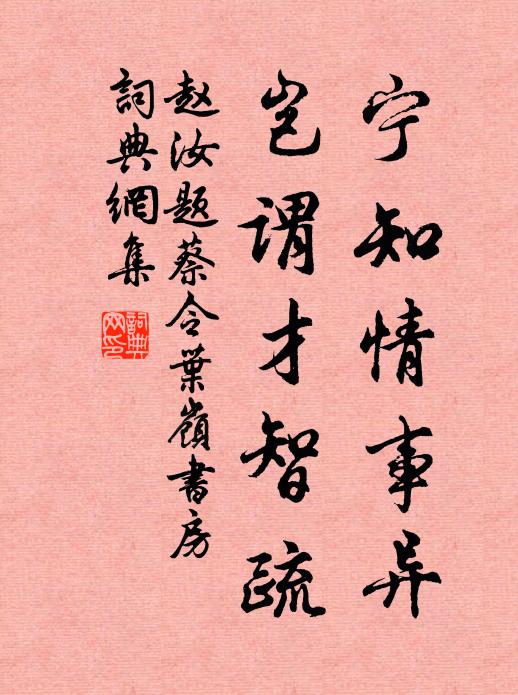 宁知情事异
岂谓才智疏
赵汝题蔡令叶岭书房
詞典網集
詞典网印